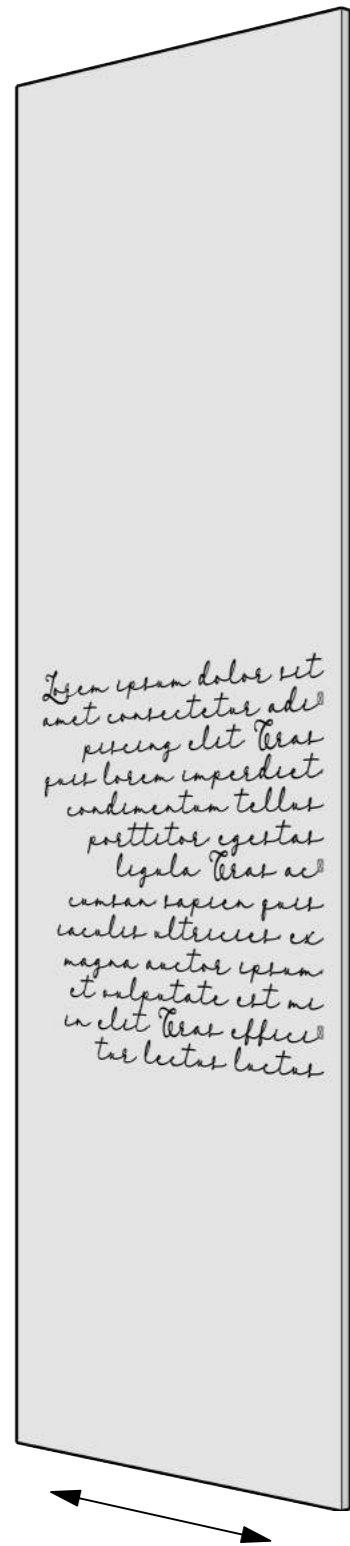 Lorem ipsum dolor sit
amet consectetur adi
piscing elit Cras
quis lorem imperdiet
condimentum tellus
porttitor egestas
ligula Cras ac
cumsan sapien quis
iaculis ultricies ex
magna auctor ipsum
et vulputate est mi
in elit Cras effici
tur lectus luctus